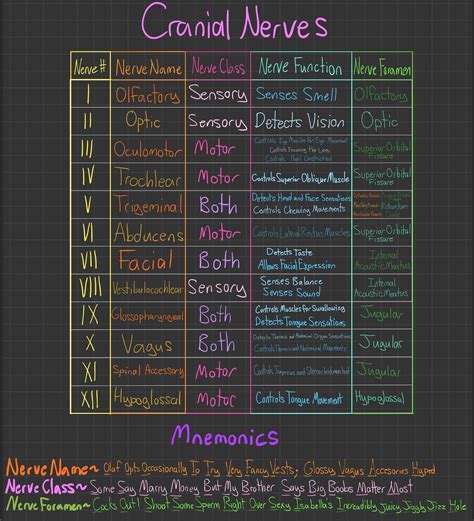 Cranial Nerves
Nerve # Nerve Name Nerve Class Nerve Function Nerve Foramen
I Olfactory Sensory Senses Smell Olfactory
II Optic Sensory Detects Vision Optic
III Oculomotor Motor Controls Eye Muscles for Eye Movement Superior Orbital
Controls Focusing The Lens Fissure
Controls Pupil Constriction
IV Trochlear Motor Controls Superior Oblique Muscle Superior Orbital
Fissure
V Trigeminal Both Detects Head and Face Sensations
Controls Chewing Movements
VI Abducens Motor Controls Lateral Rectus Muscles Superior Orbital
Foramen
VII Facial Both Detects Taste Internal
Allows Facial Expression Acoustic Meatus
VIII Vestibulocochlear Sensory Senses Balance Internal
Senses Sound Acoustic Meatus
IX Glossopharyngeal Both Controls Muscles for Swallowing Jugular
Detects Tongue Sensations
X Vagus Both Jugular
XI Spinal Accessory Motor Controls Trapezius and Sternocleidomastoid Jugular
XII Hypoglossal Motor Controls Tongue Movement Hypoglossal
Mnemonics
Nerve Name~ Olaf Opts Occasionally To Try Very Fancy Vests; Glossy Vagus Accesories Hyped
Nerve Class~ Some Say Marry Money But My Brother Says Big Boobs Matter Most
Nerve Foramen~ Cocks Out! Shoot Some Sperm Right Over Sexy Isabella's Incredibly Juicy Jiggly Jizz Hole